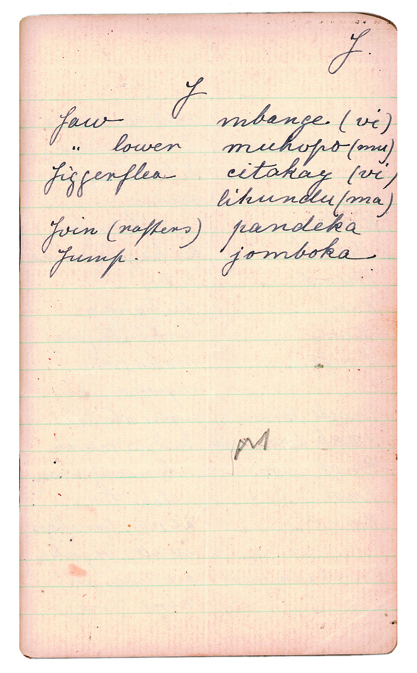 J.
J
Jaw mbange (vi)
" lower muhopo (mu)
Jiggerflea citakay (vi)
lihundu (ma)
Join (rafters) pandeka
Jump. jomboka